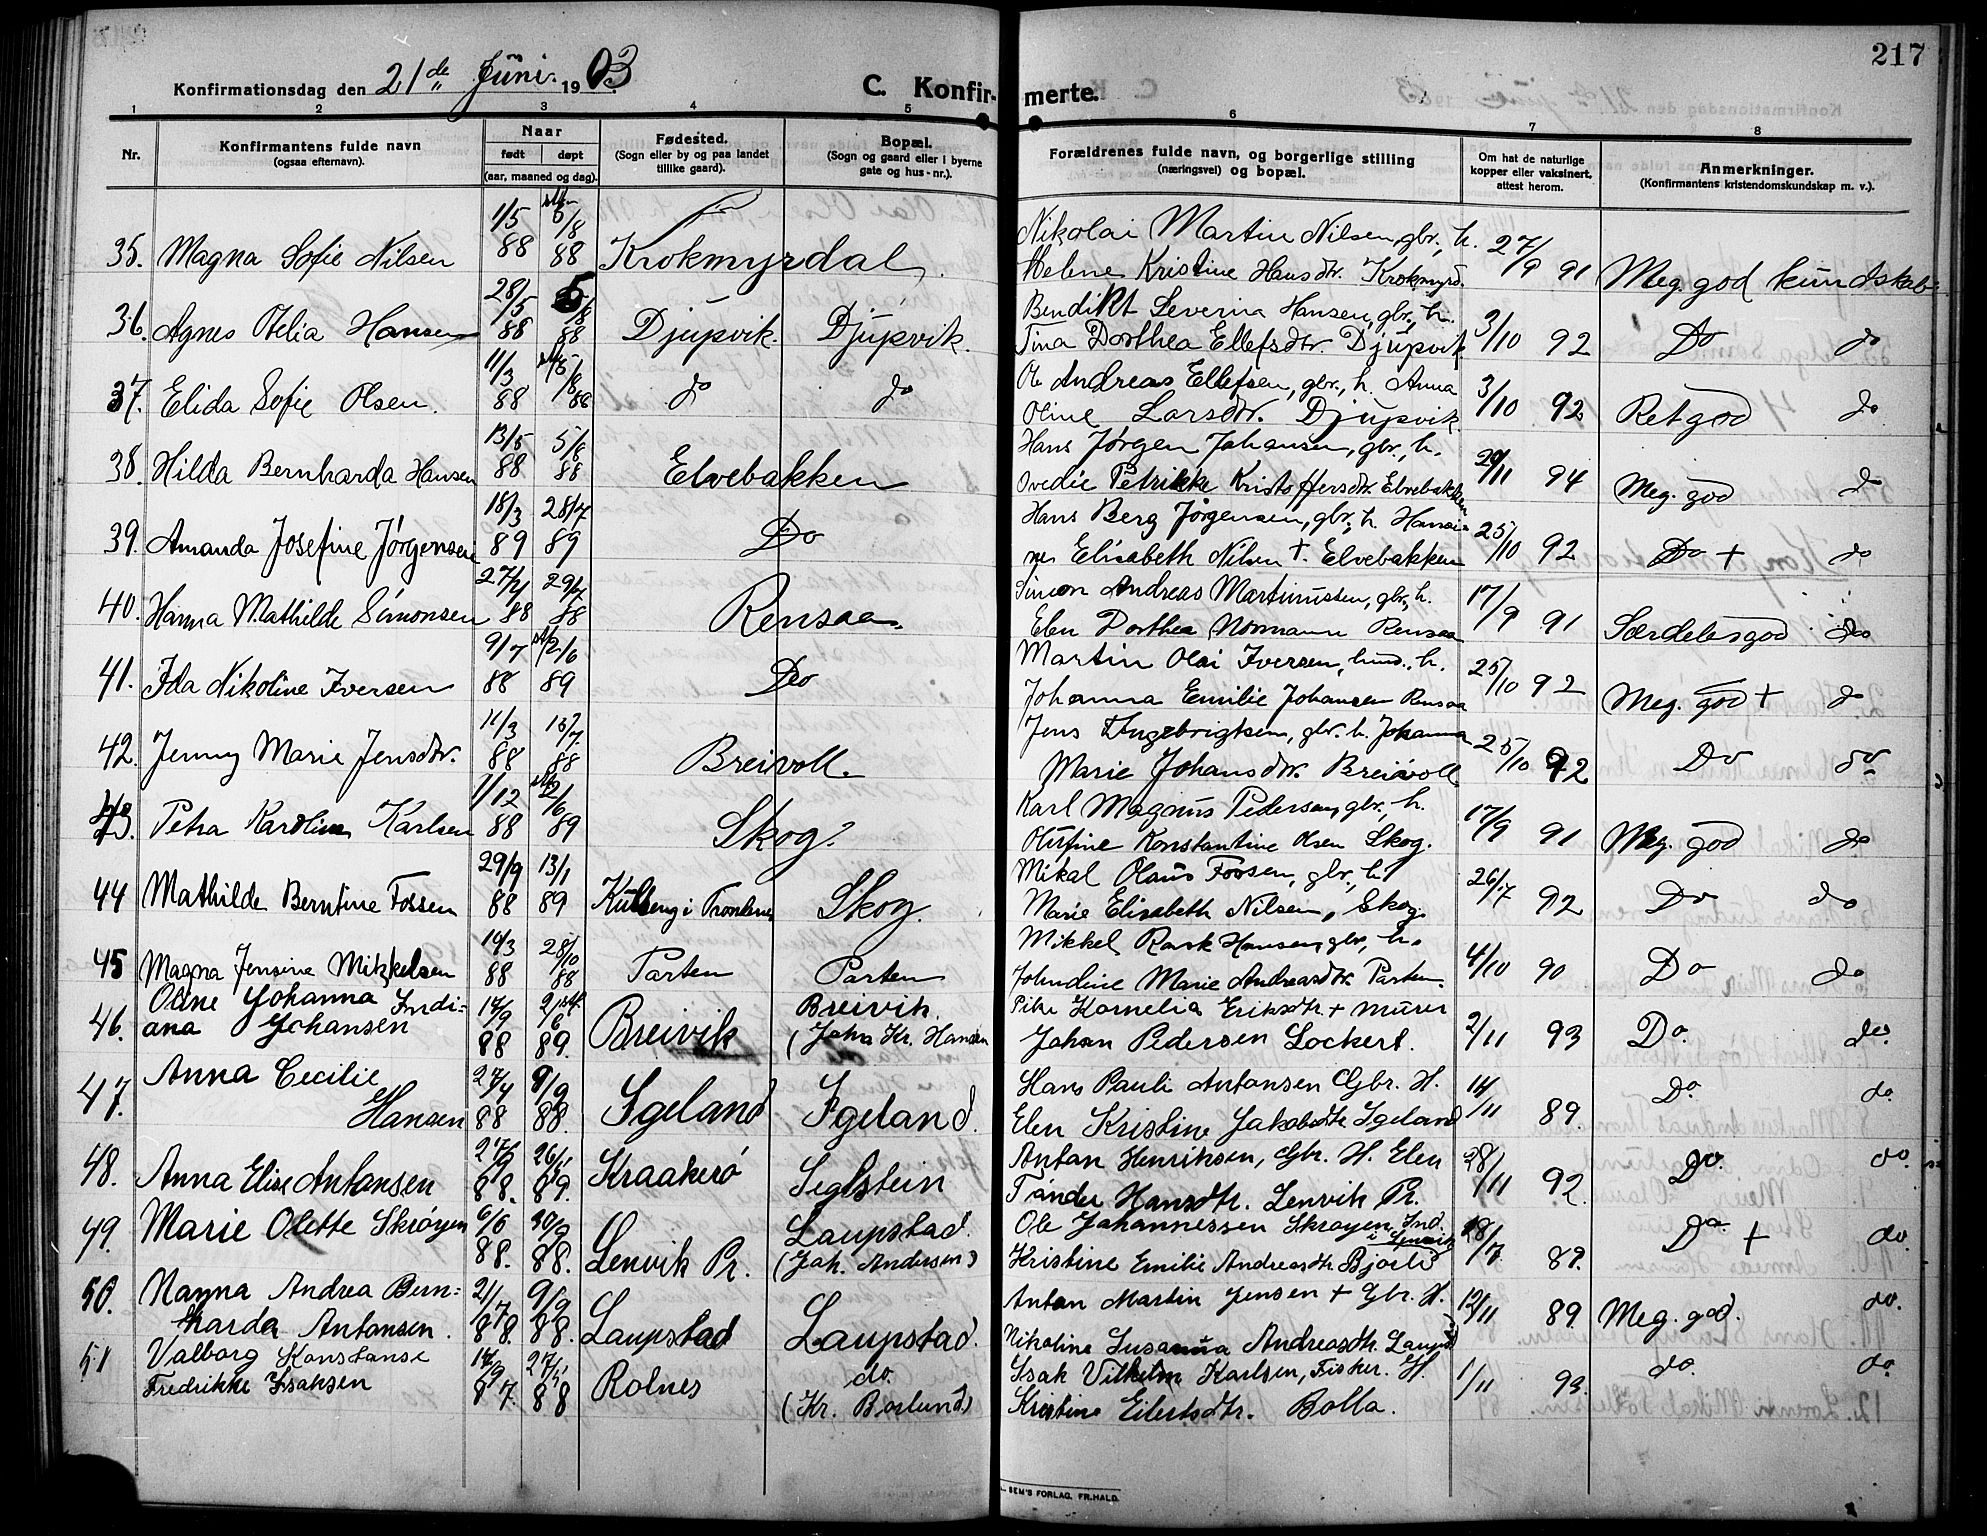 217
Konfirmationsdag den 21de Juni 1903.
C. Konfirmerte.
1 2 3 4 5 6 7 8
Nr.
Konfirmantens fulde navn
(ogsaa efternavn).
Naar
født døpt
(aar, maaned og dag).
Fødested.
(Sogn eller by og paa landet
tillike gaard).
Bopæl.
(Sogn og gaard eller i byerne
gate og hus-nr.).
Forældrenes fulde navn, og borgerlige stilling
(næringsvei) og bopæl.
Om hat de naturlige
kopper eller vaksinert,
attest herom.
Anmerkninger.
(Konfirmantens kristendomskundskap m. v.).
35. Magna Sofie Nilsen 1/5 88 5/8 88 Krokmyrdal.
Nikolai Martin Nilsen, gbr., h.
Helene Kristine Hansdtr. Krokmyrd. 27/9 91 Meg. god kundskab
36. Agnes Otelia Hansen 28/5 88 88 Djupvik. Djupvik.
Bendikt Severin Hansen, gbr., h.
Tina Dorthea Ellefsdtr. Djupvik 3/10 92 Do do
37. Elida Sofie Olsen. 11/3 88 5/8 88 do do
Ole Andreas Ellefsen, gbr., h. Anna
Oline Larsdtr. Djupvik 3/10 92 Ret god do
38. Hilda Bernharda Hansen 13/5 88 5/8 88 Elvebakken
Hans Jørgen Johansen, gbr., h.
Ovedie Petrikke Kristoffersdtr. Elvebakken 29/11 94 Meg. god do
39. Amanda Josefine Jørgensen 18/3 89 28/7 89 Do
Hans Berg Jørgensen, gbr., h. Hansi-
ne Elisabeth Nilsen + Elvebakken 25/10 92 Do + do
40. Hanna Mathilde Simonsen 27/4 88 29/7 88 Rensaa.
Simon Andreas Martinussen, gbr., h.
Elen Dorthea Normann Rensaa 17/9 91 Særdeles god do
41. Ida Nikoline Iversen 9/7 88 2/6 89 Do
Martin Olai Iversen, h.
Johanna Emilie Johansen Rensaa 25/10 92 Meg. god + do
42. Jenny Marie Jensdtr. 11/3 88 15/7 88 Breivoll.
Jens Ingebrigtsen, gbr. h. Johanna
Marie Johansdtr. Breivoll 25/10 92 Do do
43. Petra Karoline Karlsen 1/12 88 2/6 89 Skog.
Karl Magnus Pedersen, gbr., h.
Olufine Konstantine Olsen Skog. 17/9 91 Meg. god do
44 Mathilde Berntine Fossen 29/9 88 13/1 89 i Trondenes Skog.
Mikal Olaus Fossen, gbr., h.
Marie Elisabeth Nilsen, Skog. 26/7 92 Do do
45 Magna Jensine Mikkelsen 10/3 88 28/10 88 Parten Parten
Mikkel Rask Hansen, gbr., h.
Johndine Marie Andreasdtr. Parten. 4/10 90 Do do
46. Oline Johanna Indi-
ana Johansen 14/9 88 2/6 89. Breivik Breivik.
(Johs Kr. Hansen
Kornelia Eriksdtr + murer
Johan Pedersen Lockert. 2/11 93 Do. do.
47. Anna Cecilie
Hansen 27/4 88 9/9 88. Igeland Igeland.
Hans Pauli Antonsen Gbr. H.
Elen Kristine Jakobsdtr Igeland 14/11 89. Do. do.
48. Anna Elise Antonsen 88. 26/1 89. Kraakerö Seglstein
Anton Henriksen, Gbr. H. Elen
Hansdtr. Lenvik Pr. 28/11 92. Do. do.
49. Marie Olette Skrøyen 6/6 88. 30/9 88. Lenvik Pr. Laupstad.
(Joh. Andersen)
Ole Johannessen Skrøyen, Ind.
i Lenvik
Kristine Emilie Andreasdtr Bjorli 28/7 89. Do + do.
50. Nanna Andrea Bern-
harda Antonsen. 21/7 88. 9/9 88. Laupstad Laupstad.
Anton Martin Jensen + Gbr. H.
Nikoline Susanna Andreasdtr Laupst 12/11 89 Meg. god. do.
51 Valborg Konstanse
Fredrikke Isaksen 14/9 87. 27/1 88 Rolnes do.
(Kr. Borlund)
Isak Vilhelm Karlsen, Fisker. H.
Kristine Eilertsdtr. Bolla. 1/11 93. do. do.
SEM'S FORLAG. FR.HALD.